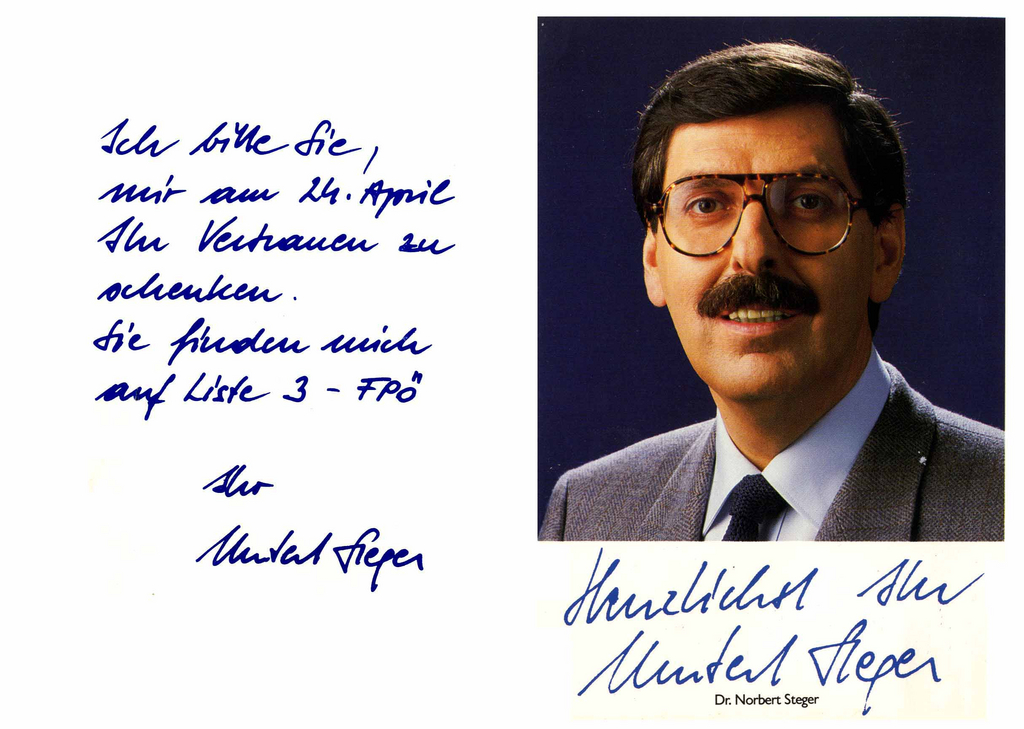 Ich bitte Sie,
mir am 24. April
Ihr Vertrauen zu
schenken.
Sie finden mich
auf Liste 3 - FPÖ
Ihr
Norbert Steger
Herzlichst Ihr
Norbert Steger
Dr. Norbert Steger